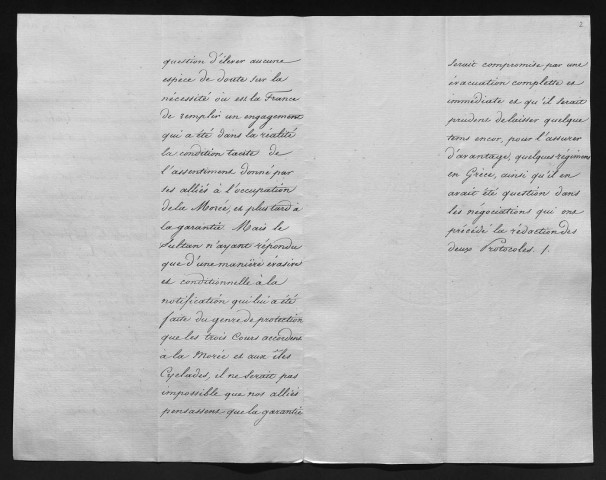 question d'élever aucune
espèce de doute sur la
nécessité où est la France
de remplir un engagement
qui a été dans la réalité
la condition tacite de
l'assentiment donné par
ses alliés à l'occupation
dela Morée, et plus tard à
la garantie. Mais le
Sultan n'ayant répondu
que d'une manière évasive
et conditionnelle à la
notification qui lui a été
faite du genre de protection
que les trois Cours accordent
à la Morée et aux îles
Cyclades, il ne serait pas
impossible que nos alliés
pensassent que la garantie
2
serait compromise par une
évacuation complette et
immédiate et qu'il serait
prudent de laisser quelque
tems encor, pour l'assurer
d'avantage, quelques régimens
en Grèce, ainsi qu'il en
avait été question dans
les négociations qui ont
précédé la rédaction des
deux Protocoles. /.